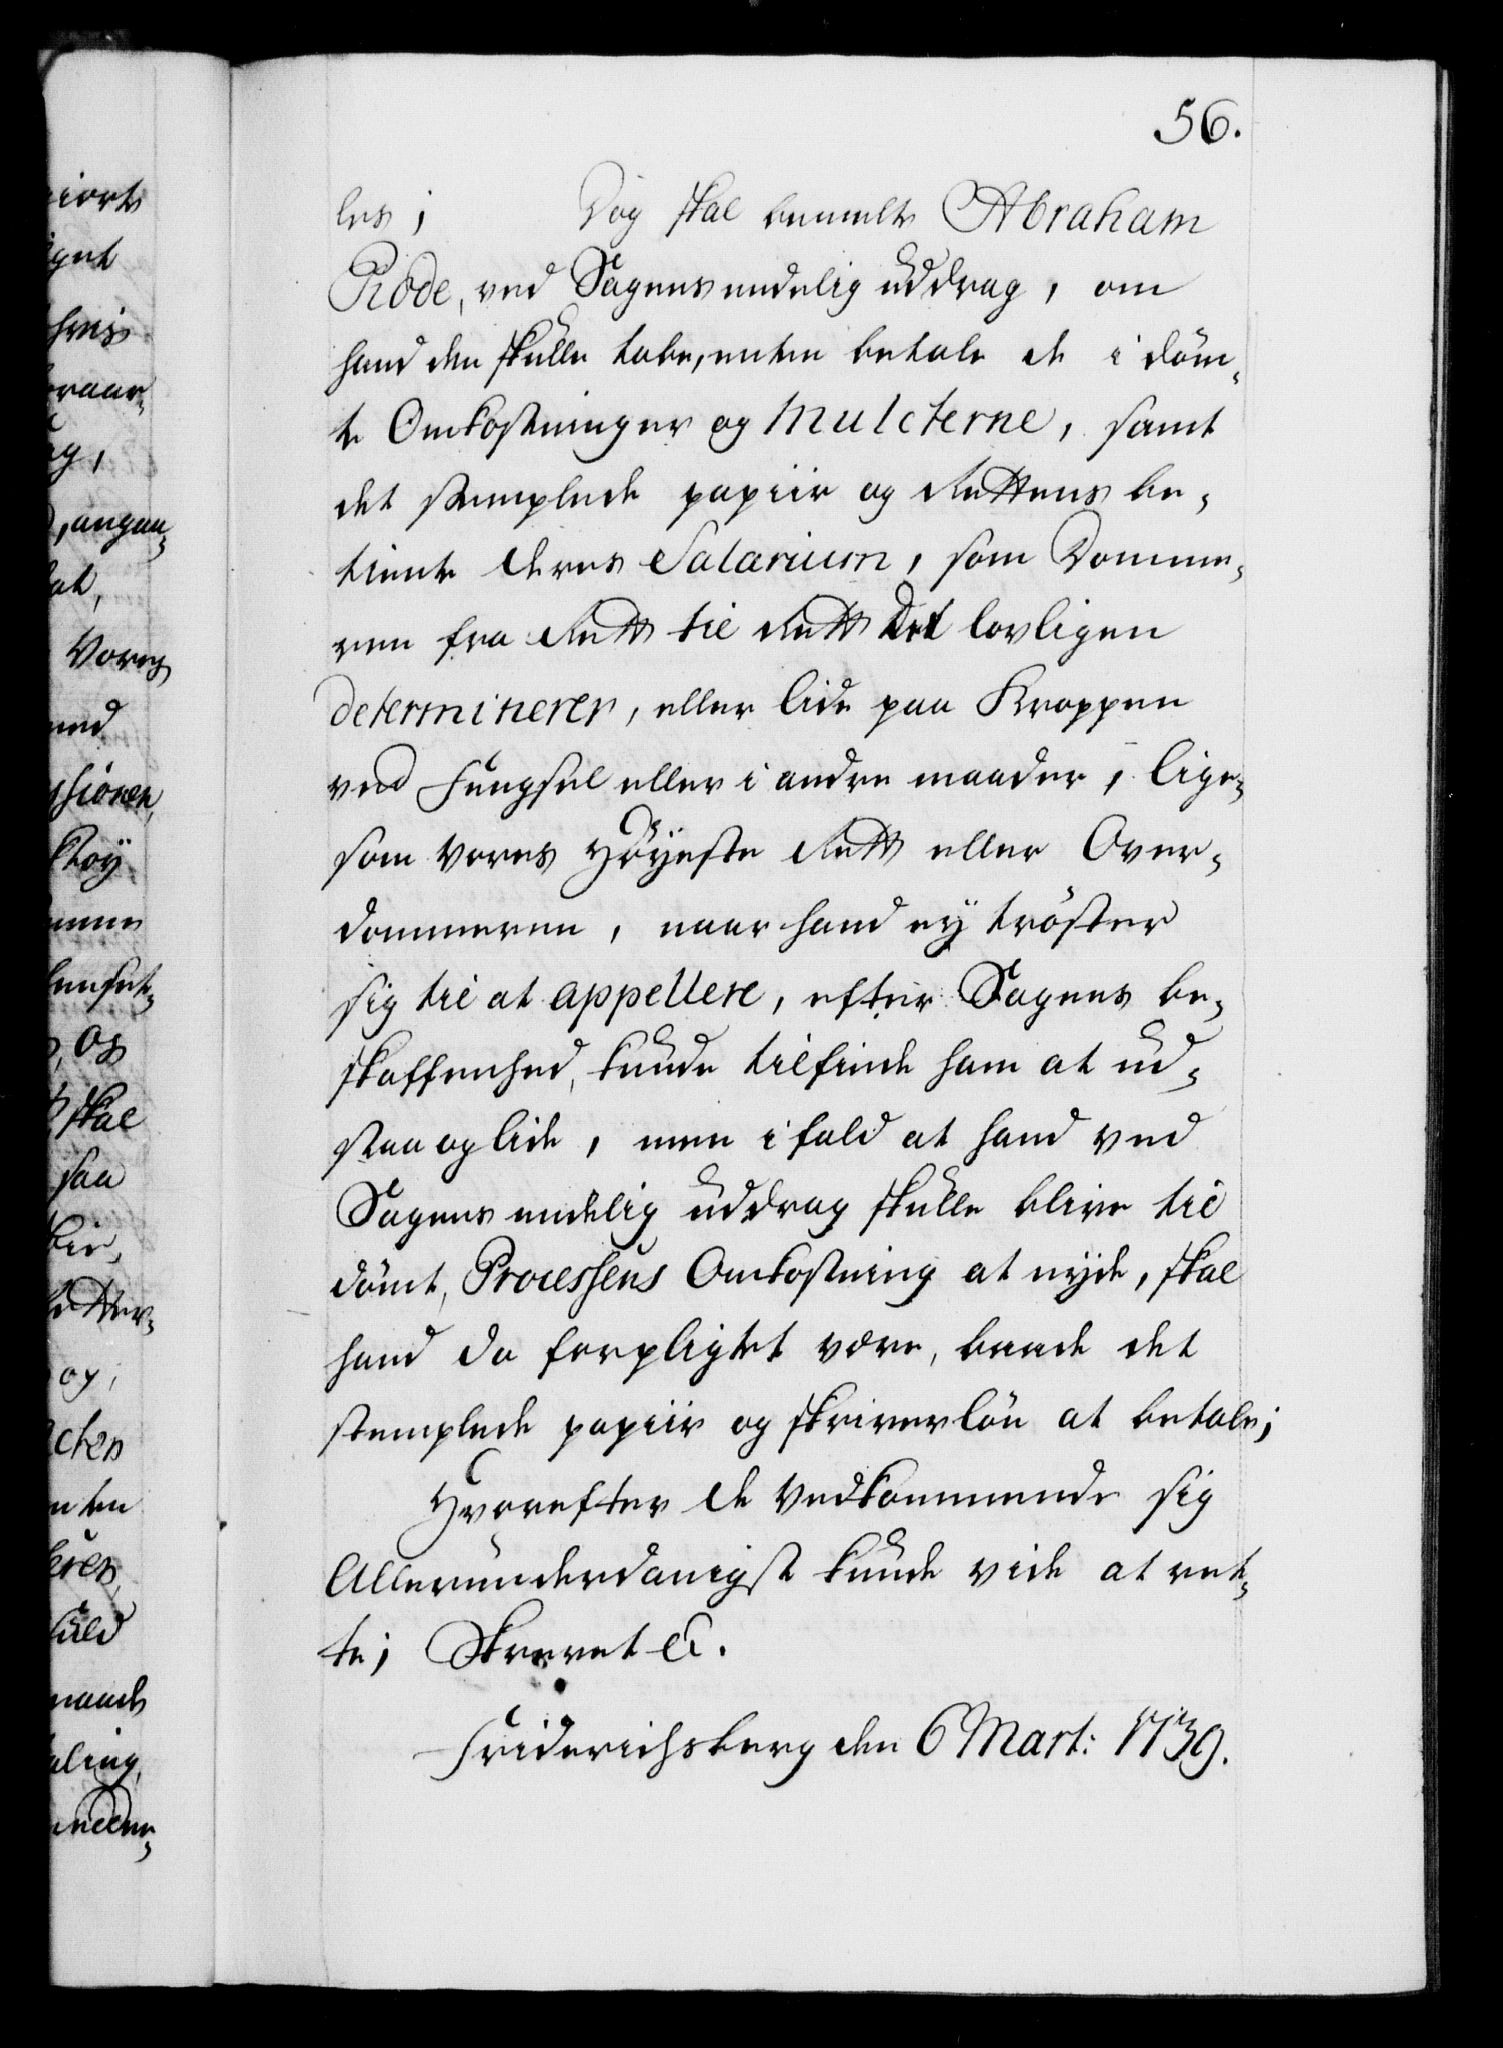 56.
les; Dog skal bemelte Abraham
Rode, ved Sagens endelig uddrag, om
hand den skulle tabe, enten betale de i döm-
te Omkostninger og Mulcterne, samt
det stemplede papiir og Rettens be-
tiente deres Salarium, som Domme-
ren fra Rett til Rett det lovligen
determinerer, eller lide paa Kroppen
ved Fengsel eller i andre maader, lige-
som vores Höyeste Rett eller Over-
dommeren, naar hand ey tröster
sig til at appellere, efter Sagens be-
skaffenhed, kunde tilfinde ham at ud-
staa og lide, men ifald at hand ved
Sagens endelig uddrag skulle blive til
dömt, Processens Omkostning at nyde, skal
hand da forpligtet være, baade det
stemplede papiir og skriverlön at betale;
Hvorefter de Vedkommende sig
Allerunderdanigst kunde vide at ret-
te; Skrevet &.
Friderichsberg den 6 Mart: 1739.